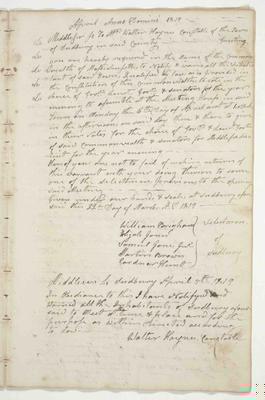 April Anno Domini 1819
Middlesex Ss To Mr Walter Haynes Constable of the Town
of Sudbury in said County Greeting
you are hereby required in the name of the Commonwealth
of Massachusetts to notify & warn all the Inhabi-
tants of said Town, qualified to vote as is provided in
the Constitution of this Commonwealth to vote in the
choice of Govr, Lieut. Govr & Senators for the year
ensuing to assemble at the Meeting House in said
Town on Monday the 5th day of April at
in the afternoon and then & there to give
in their votes for the choice of Govr & Lieut. Govr
of said commonwealth & senators for Middlesex
for the year ensuing
Hereof you are not to fail of making return of
this warrant with your doings thereon to some
one of the selectmen previous to the opening
said Meeting
Given under our hands & seals at Sudbury afore
said this Day of March AD 1819
William Brigham
Elijah Jones
Samuel Jones Junr
Martin Brown
Gardner Hunt
Selectmen
of
Sudbury
Middlesex Ss Sudbury April 5th 1819
In Obedience to this I have Notifyed and
warned all the Inhabitants of Sudbury afore
said to Meet at time & place and for the
purpose as within directed according
to law
Walter Haynes Constable